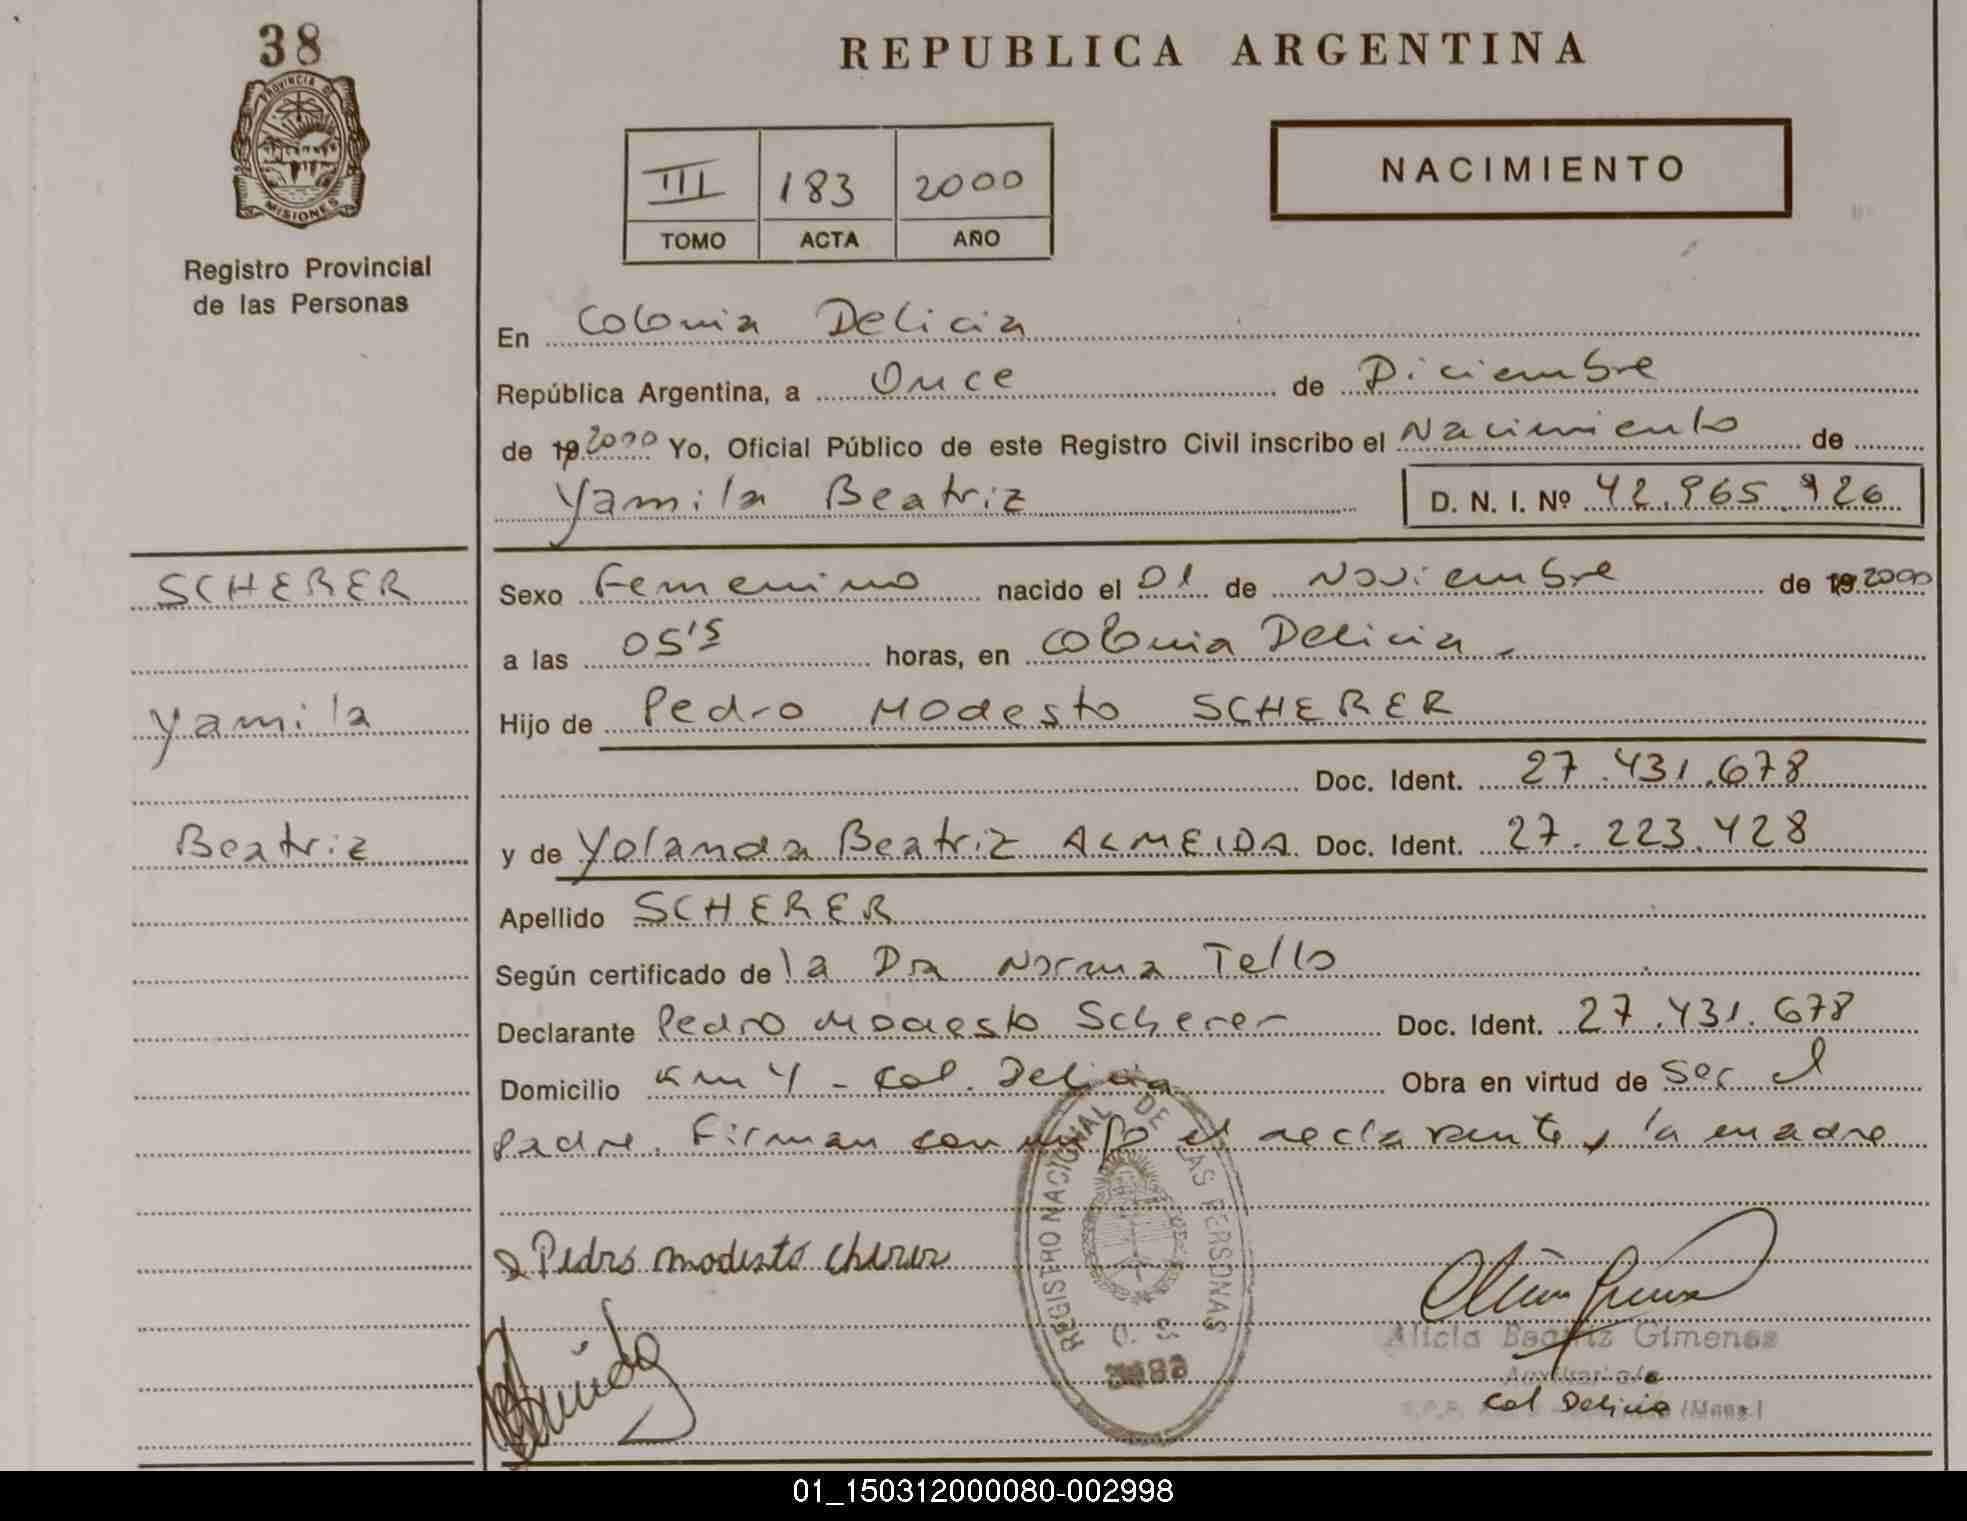 38
PROVINCIA DE
MISIONES
Registro Provincial
de las Personas
REPUBLICA ARGENTINA
III 183 2000
TOMO ACTA AÑO
NACIMIENTO
En Colonia Delicia
República Argentina, a Once de Diciembre
de 19 2000 Yo, Oficial Público de este Registro Civil inscribo el Nacimiento de
Yamila Beatriz D. N. I. Nº 42.965.926
SCHERER
Yamila
Beatriz
Sexo Femenino nacido el 01 de Noviembre de 19 2000
a las 05'5 horas, en Colonia Delicia
Hijo de Pedro Modesto SCHERER
Doc. Ident. 27.431.678
y de Yolanda Beatriz ALMEIDA Doc. Ident. 27.223.428
Apellido SCHERER
Según certificado de la Dra Norma Tello
Declarante Pedro Modesto Scherer Doc. Ident. 27.431.678
Domicilio Km 4 - Col. Delicia Obra en virtud de ser el
padre. Firman conmigo el declarante y la madre
REGISTRO NACIONAL DE LAS PERSONAS
Pedro modesto cherer
Alicia Beatriz Gimenez
Auxiliar a/c
Col Delicia (Mnes.)
01_150312000080-002998